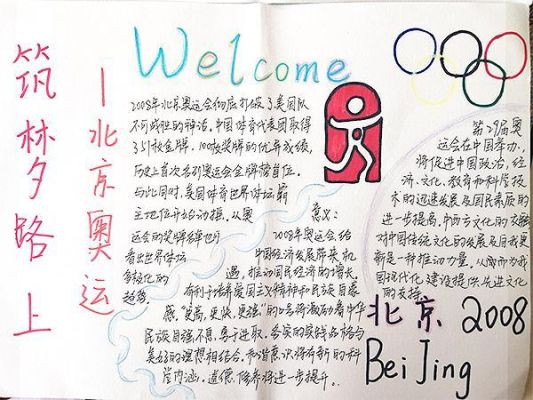 筑梦路上
—北京奥运
Welcome
2008年北京奥运会彻底打破了美国队
不可战胜的神话,中国体育代表团取得
了51枚金牌,100枚奖牌的优异成绩,
历史上首次名列奥运会金牌榜首位。
与此同时,美国体育世界体坛霸
主地位开始动摇,从奥
运会的奖牌榜也
看出世界体坛
多极化的
趋势。
意义:
2008年奥运会给
中国经济发展带来机
遇,推动国民经济的增长。
有利于培养爱国主义精神和民族自豪
感,"更高,更快,更强"的口号将激励着中华
民族自强不息,勇于进取,务实的实践品格与
美好的理想相结合,和谐意识将有新的科
学内涵,道德,修养将进一步提升。
第29届奥
运会在中国举办,
将促进中国政治,经
济、文化、教育和科学技
术的迅速发展及国民素质的
进步提高,中西方文化的交融
对中国传统文化的发展及自我更
新是一种推动力量,从而为我
国现代化建设提供先进文化
的支持。
北京 2008
BeiJing